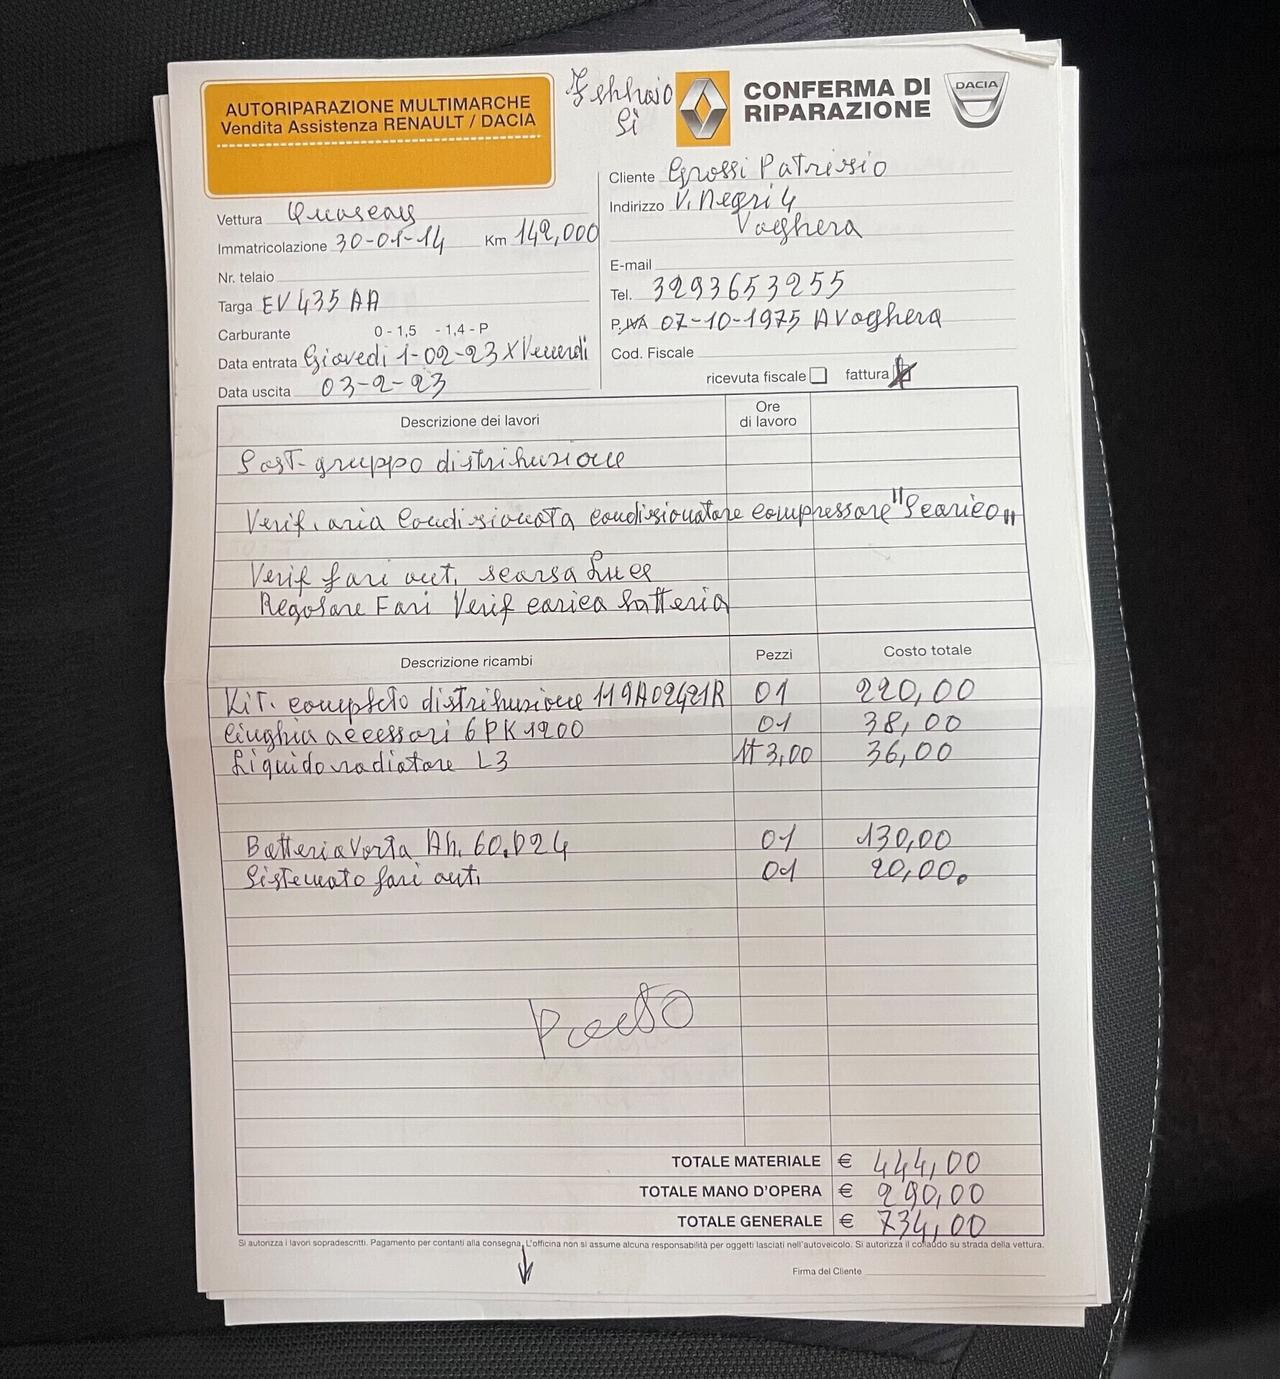 AUTORIPARAZIONE MULTIMARCHE
Vendita Assistenza RENAULT / DACIA
Febbraio
Si
CONFERMA DI
RIPARAZIONE
DACIA
Vettura
Immatricolazione 30-01-14 Km 142,000
Nr. telaio
Targa EV435AA
Carburante 0 - 1,5 - 1,4 - P
Data entrata Giovedi 1-02-23 X Venerdi
Data uscita 03-2-23
Cliente Grossi Patrizio
Indirizzo V. Negri 4
Voghera
E-mail
Tel. 3293653255
P. IVA 07-10-1975 A Voghera
Cod. Fiscale
ricevuta fiscale fattura
Descrizione dei lavori Ore di lavoro
Sost. gruppo distribuzione
Verif. aria condizionata condizionatore compressore "Scarico"
Verif fari ant. scarsa luce
Regolare Fari Verif carica batteria
Descrizione ricambi Pezzi Costo totale
Kit. completo distribuzione 119A02421R 01 220,00
Cinghia accessori 6PK1200 01 38,00
Liquido radiatore L3 lt 3,00 36,00
Batteria Varta Ah. 60.D24 01 130,00
Sistemato fari ant. 01 20,00
TOTALE MATERIALE € 444,00
TOTALE MANO D'OPERA € 290,00
TOTALE GENERALE € 734,00
Si autorizza i lavori sopradescritti. Pagamento per contanti alla consegna. L'officina non si assume alcuna responsabilità per oggetti lasciati nell'autoveicolo. Si autorizza il collaudo su strada della vettura.
Firma del Cliente